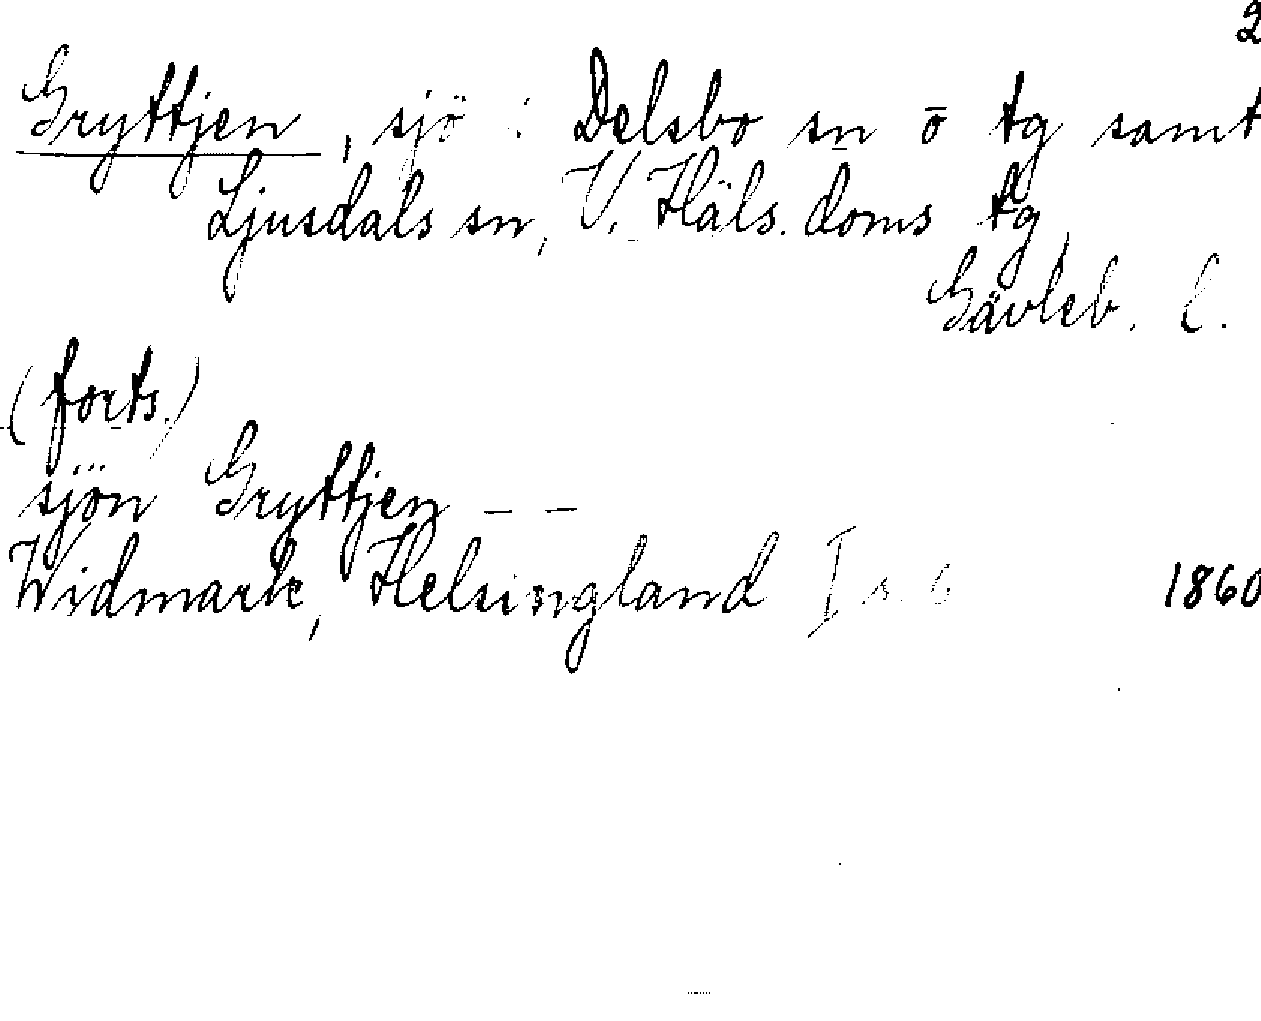 2
Gryttjen, sjö i Delsbo sn o tg samt
Ljusdals sn, V. Häls. doms tg,
Gävleb. l.
(forts.)
sjön Gryttjen – –
Widmark, Helsingland I s. 6 1860